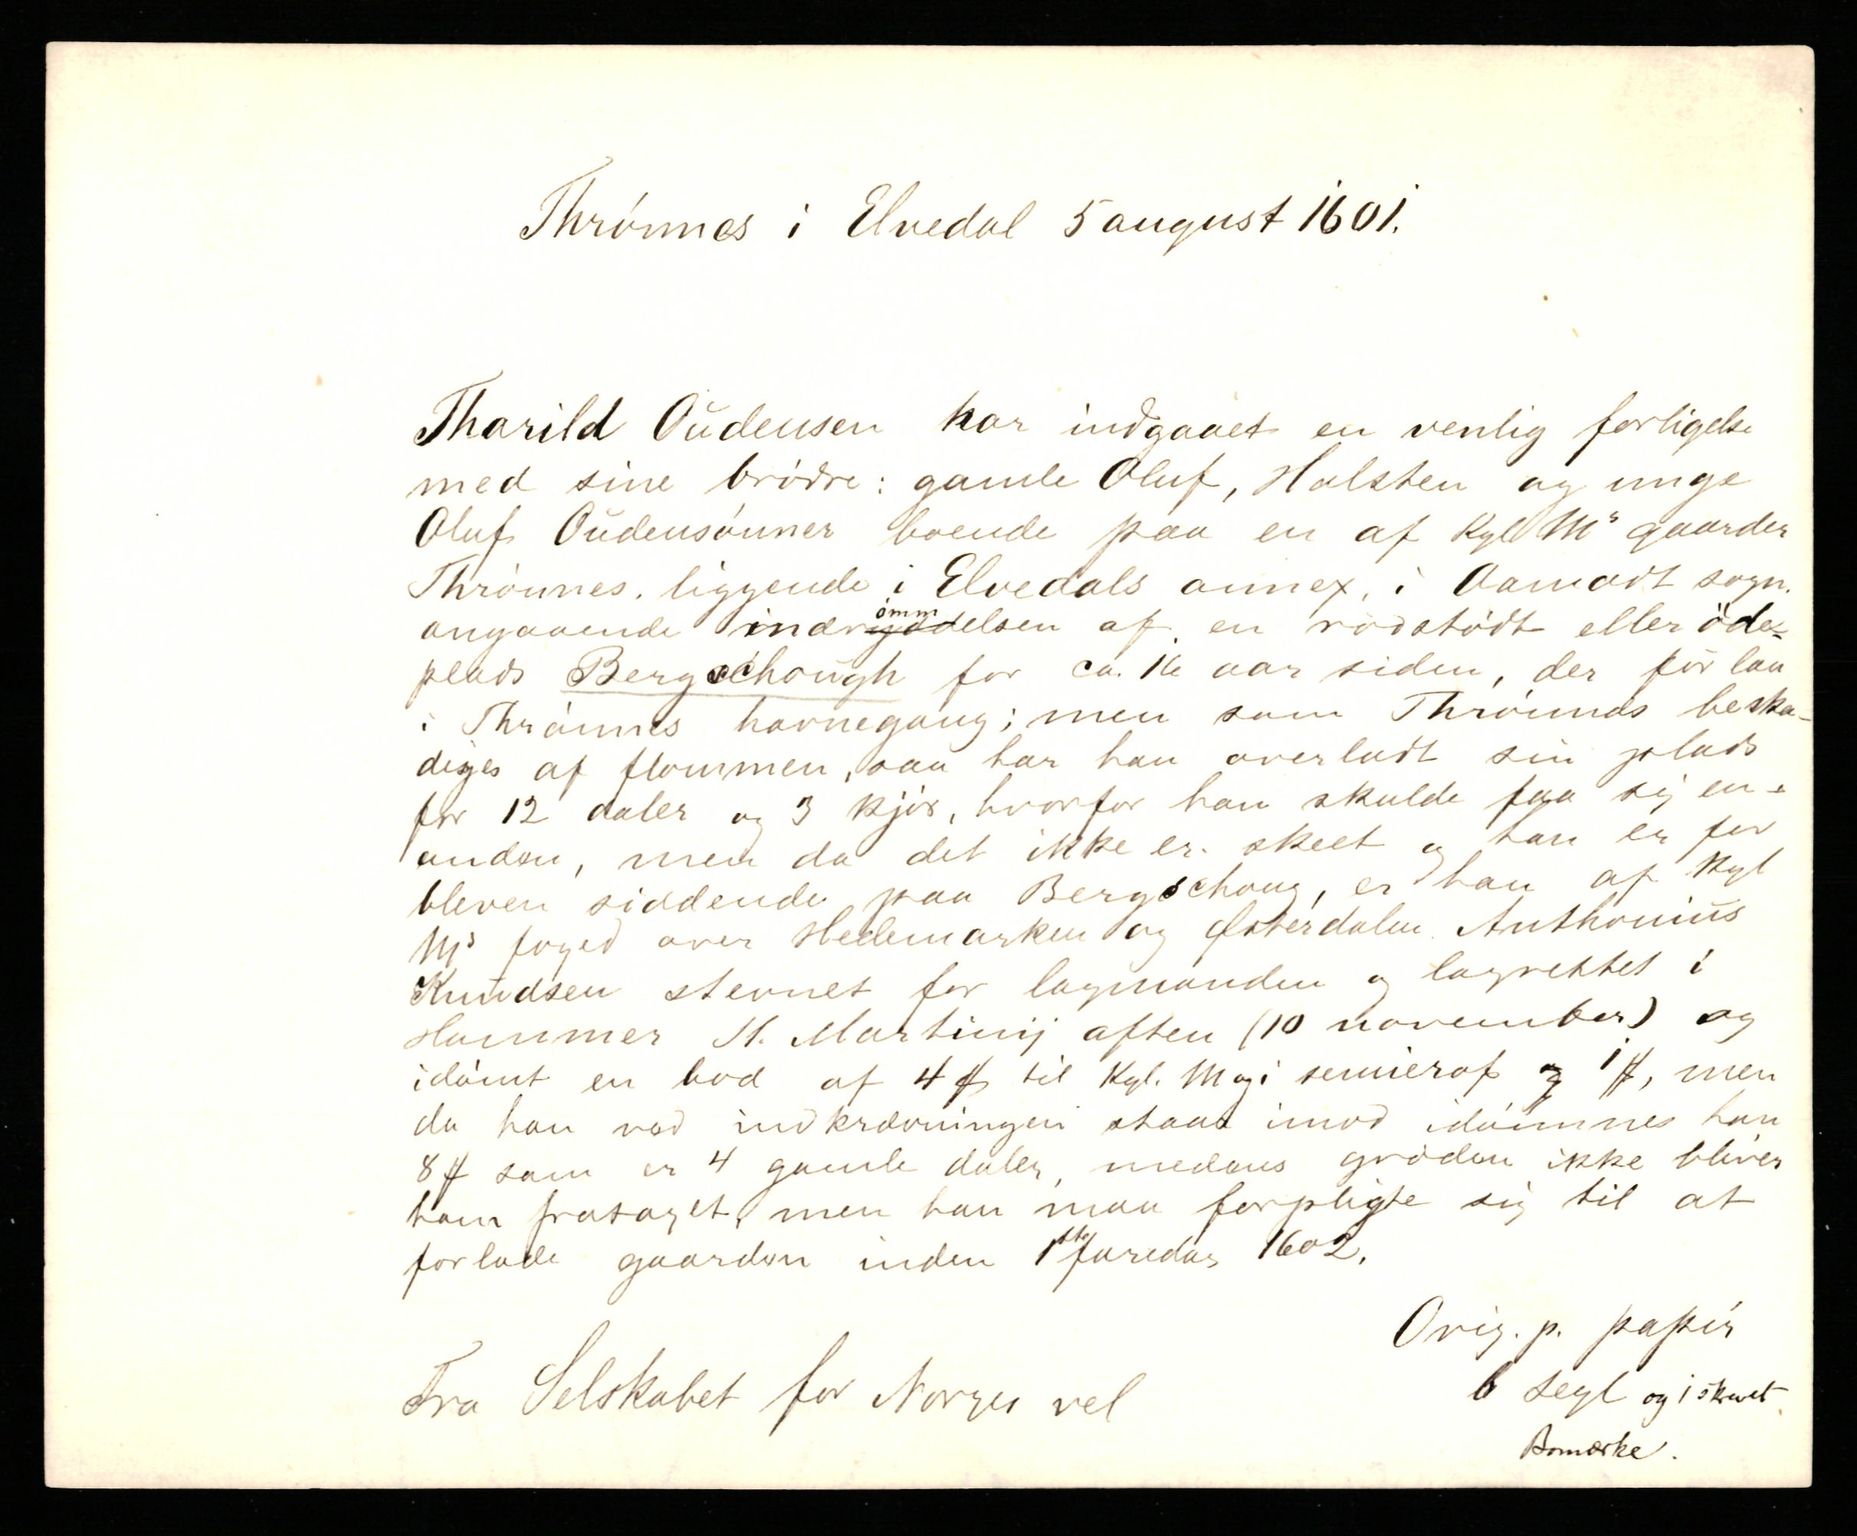 Thrónnes i Elvedal 5 august 1601.
Tharild Oŭdensen har indgaaet en venlig forligelse
med sine brödre: gamle Oluf, Halsten og unge
Oluf Oŭdensónner boende paa en af Kgl Ms gaarder
Thrónnes, liggende i Elvedals annex, i Aamodt sogn.
angaaende indrömmelsen af en rödstödt eller öde-
plads Bergschoŭgh for ca. 16 aar siden, der för laa
i Thrónnes havnegang; men som Thrónnes beska-
diges af flommen, saa har han overladt sin plads
for 12 daler og 3 kjór, hvorfor han skulde faa sig en
anden, men da det ikke er skeet og han er for
bleven siddende paa Bergschoug, er han af Kgl
Ms foged over Hedemarken og Østerdalen Anthoniŭs
Knudsen stevnet for lagmanden og lagrettet i
Hammer St. Martinij aften (10 november) og
idómt en bod af 4 ₰ til Kgl. Maj og 1 ₰, men
da han ved indkrævningen staar imod idómmes han
8 ₰ som er 4 gamle daler, medens gróden ikke bliver
ham frasaget, men han maa forpligte sig til at
forlade gaarden inden 1ste faredag 1602.
Orig. p. papir
6 segl og 1 skrevet
Bomærke.
Fra Selskabet for Norges vel